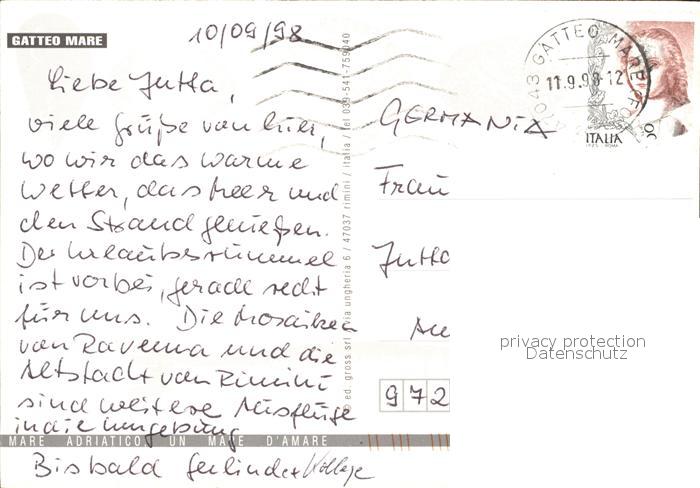 GATTEO MARE
10/09/98
Liebe Jutta,
viele Grüße von hier,
wo wir das warme
Wetter, das Meer und
den Strand genießen.
Der Urlaubsrummel
ist vorbei, gerade recht
für uns. Die Mosaiken
von Ravenna und die
Altstadt von Rimini
sind weitere Ausflüge
in die Umgebung
MARE ADRIATICO UN MARE D'AMARE
Bis bald Gerlinde +
ed. gross srl via ungheria 6 / 47037 rimini / italia / tel 039-541-759040
47043 GATTEO MARE FO
11.9.98-12
ITALIA
GERMANIA
Frau
Jutta
972
privacy protection
Datenschutz